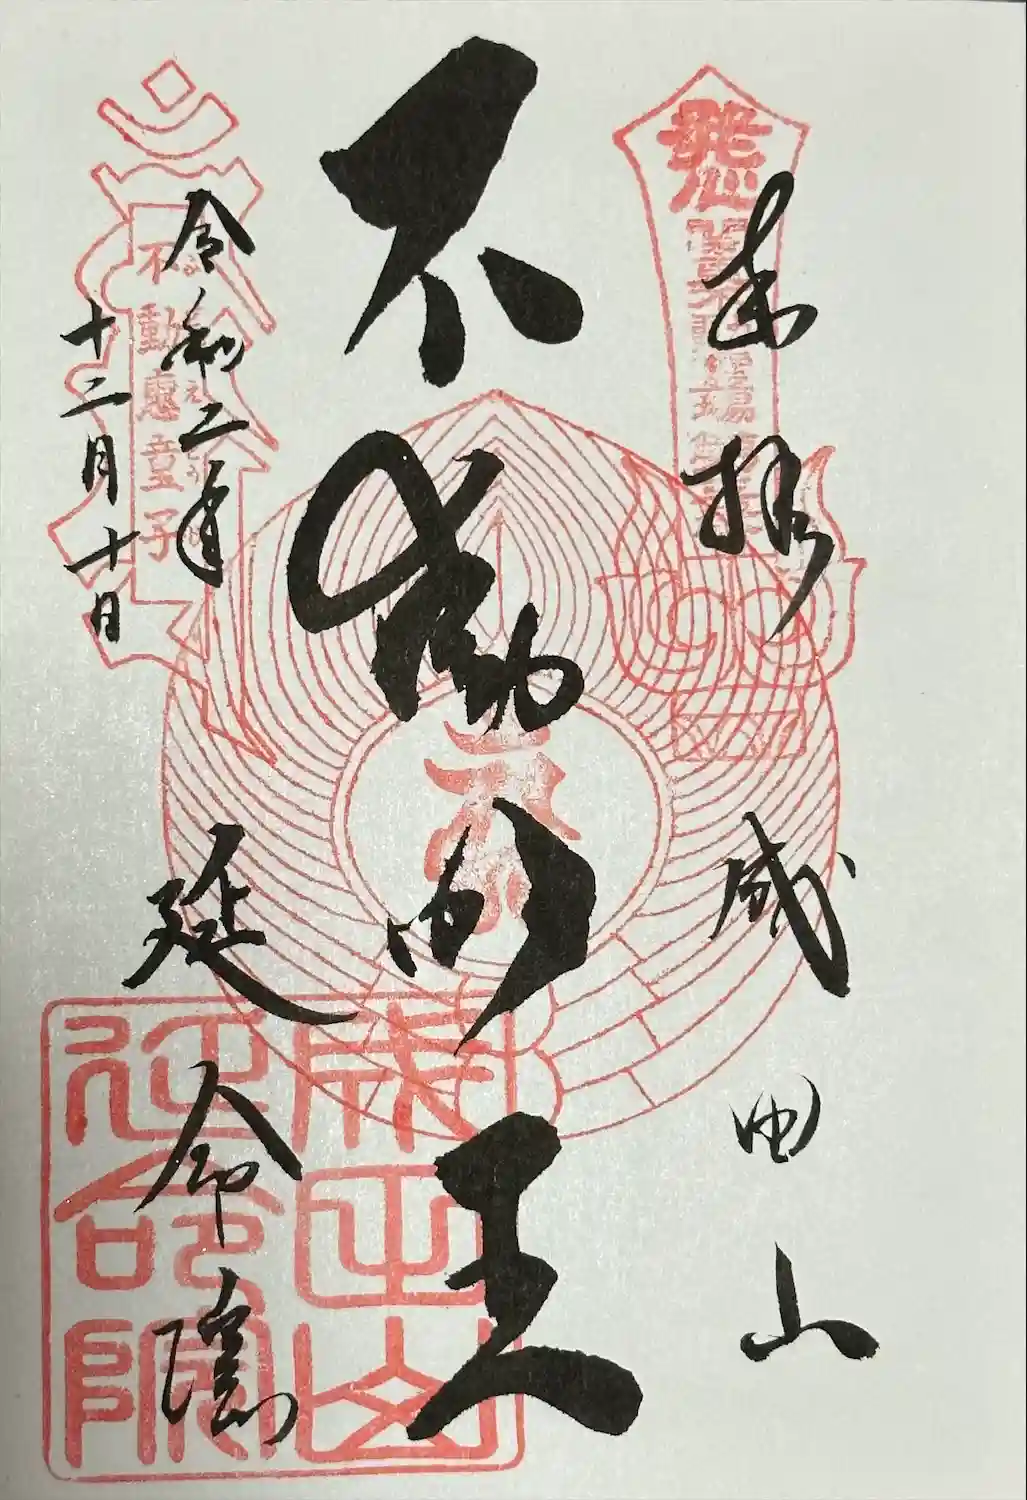 奉拝 成田山
發心
不動明王
令和二年
十二月十日
不動惠童子
延命院
成田山
延命院